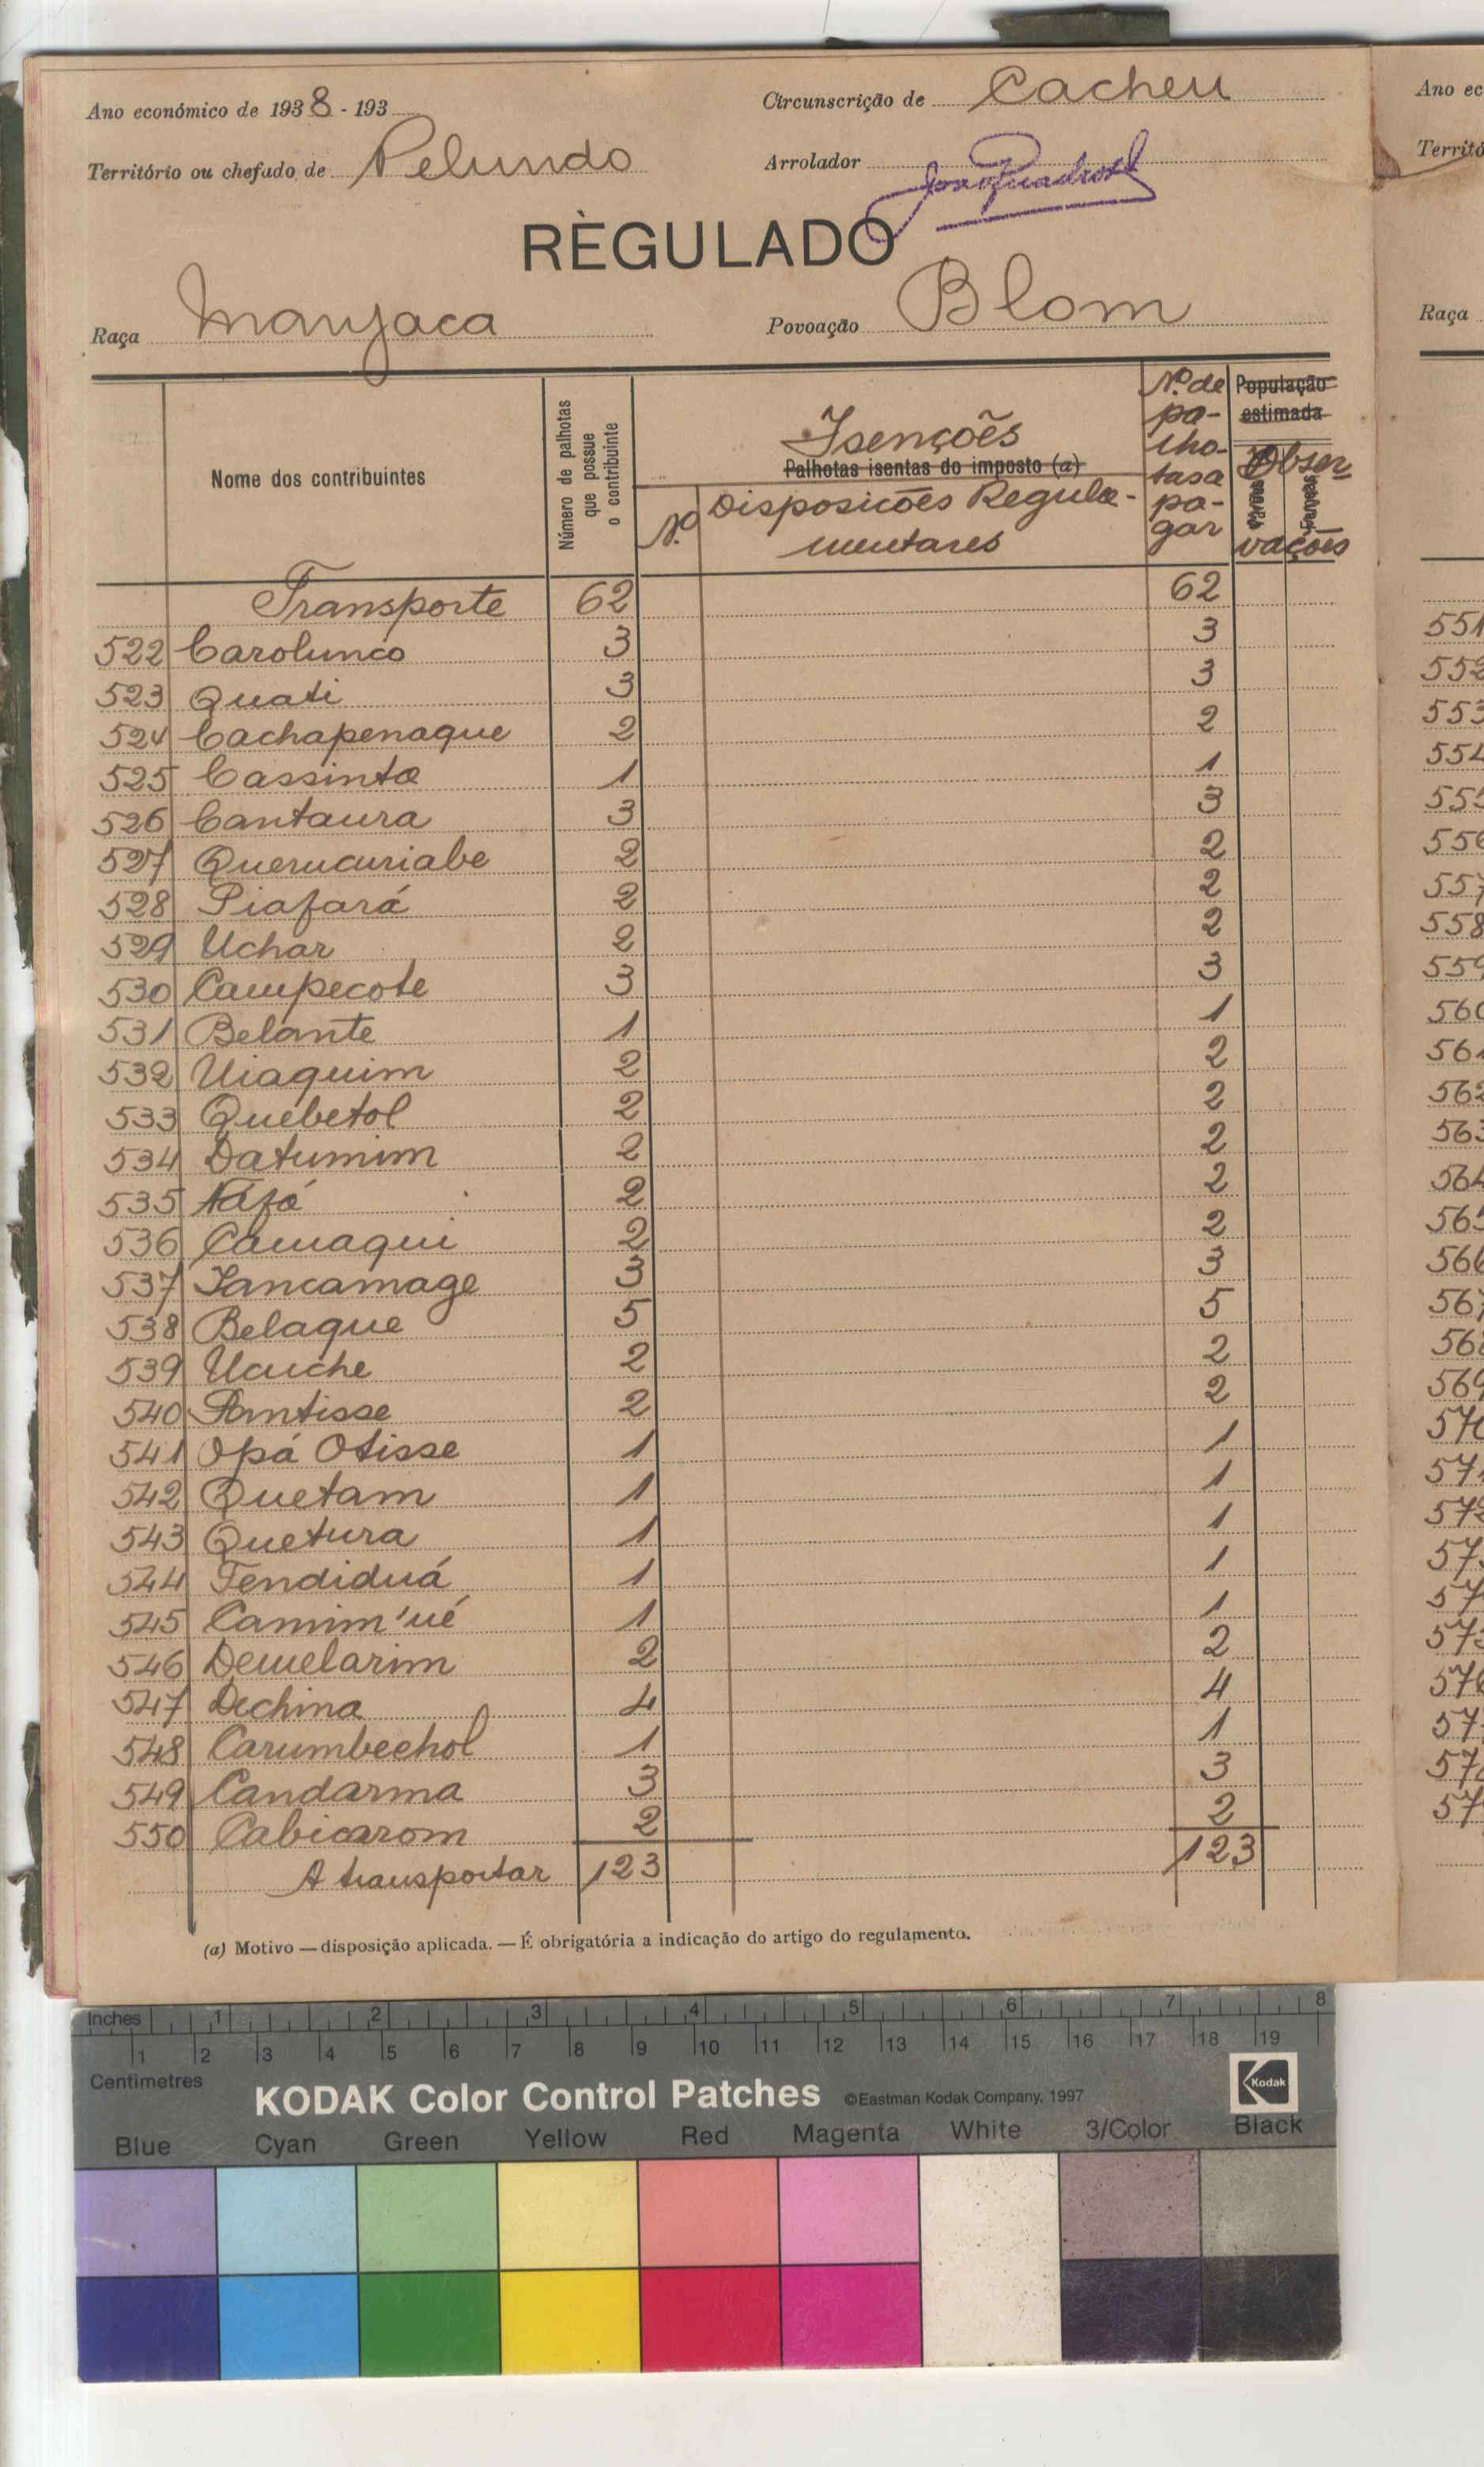 Ano económico de 1938 - 193
Circunscrição de Cacheu
Território ou chefado de Pelundo
Arrolador
RÈGULADO
Raça Manjaca
Povoação Blom
Nome dos contribuintes
Número de palhotas que possue o contribuinte
Isenções
Palhotas isentas do imposto (a)
N.º Disposicões Regula-
mentares
N.º de pa-lho-tas a pa-gar
População estimada
Obser-vações
Transporte 62 62
522 Carolunco 3 3
523 Quati 3 3
524 Cachapenaque 2 2
525 Cassinta 1 1
526 Cantaura 3 3
527 Querucuriabe 2 2
528 Piafará 2 2
529 Uchar 2 2
530 Campecote 3 3
531 Belante 1 1
532 Uiaquim 2 2
533 Quebetol 2 2
534 Datumim 2 2
535 Náfá 2 2
536 Camaqui 2 2
537 Iancamage 3 3
538 Belaque 5 5
539 Uauche 2 2
540 Pantisse 2 2
541 Opá Otisse 1 1
542 Quetam 1 1
543 Quetura 1 1
544 Tendiduá 1 1
545 Camim'ué 1 1
546 Demelarim 2 2
547 Dechina 4 4
548 Carumbechol 1 1
549 Candarma 3 3
550 Cabicarom 2 2
A transportar 123 123
(a) Motivo — disposição aplicada. — É obrigatória a indicação do artigo do regulamento.
Ano ec
Territó
Raça
551
552
553
554
555
556
557
558
559
560
561
562
563
564
565
566
567
568
569
570
Inches 1 2 3 4 5 6 7 8
1 2 3 4 5 6 7 8 9 10 11 12 13 14 15 16 17 18 19
Centimetres
KODAK Color Control Patches ©Eastman Kodak Company, 1997 Kodak
Blue Cyan Green Yellow Red Magenta White 3/Color Black